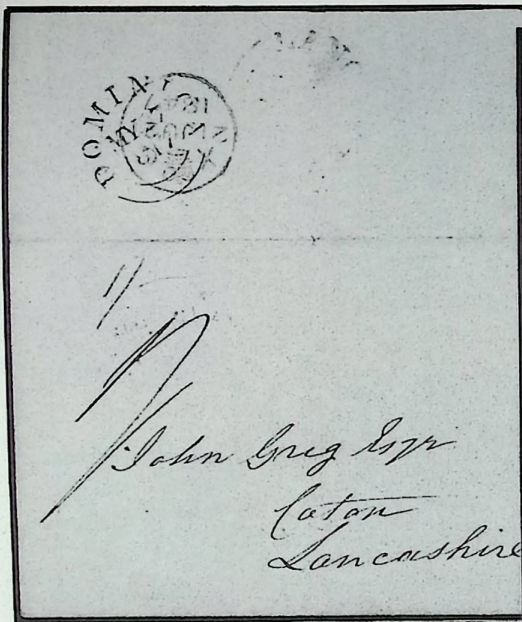 LANC
DOMINICA
MY
1/-
John Greg Esqr
Caton
Lancashire